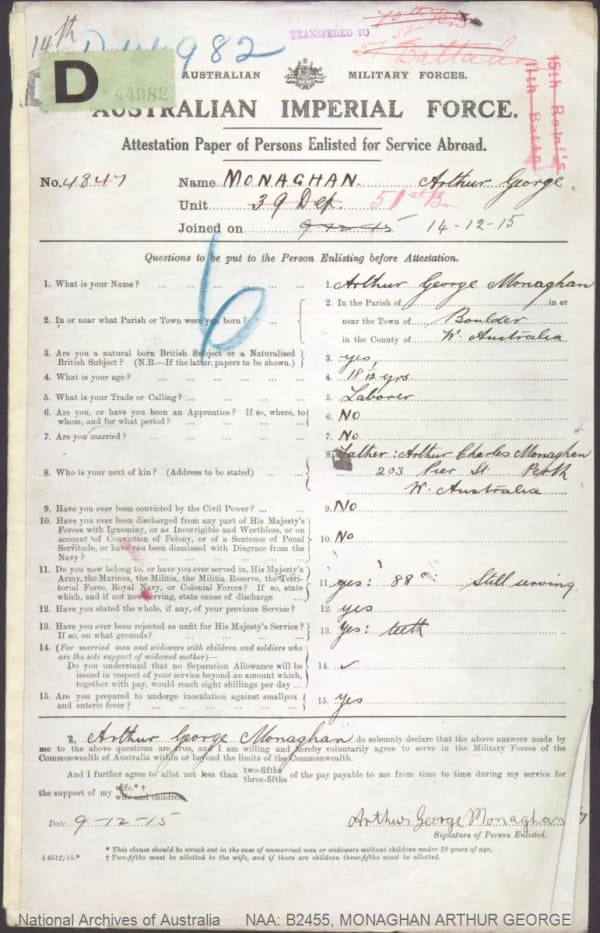 14th
D 44982
TRANSFERED TO
51st Battalion
15th Reinf's
11th Battn
D 44982
AUSTRALIAN MILITARY FORCES.
AUSTRALIAN IMPERIAL FORCE.
Attestation Paper of Persons Enlisted for Service Abroad.
No. 4847 Name MONAGHAN. Arthur George.
Unit 39 Dep. 51st Bn
Joined on 9-12-15 14-12-15
Questions to be put to the Person Enlisting before Attestation.
1. What is your Name? ... 1. Arthur George Monaghan
2. In or near what Parish or Town were you born? ... 2. In the Parish of in or
near the Town of Boulder
in the County of W. Australia
3. Are you a natural born British Subject or a Naturalised
British Subject? (N.B.—If the latter, papers to be shown.) 3. yes,
4. What is your age? ... 4. 18 2/12 yrs.
5. What is your Trade or Calling? ... 5. Laborer
6. Are you, or have you been an Apprentice? If so, where, to
whom, and for what period? ... 6. No
7. Are you married? ... 7. No
8. Who is your next of kin? (Address to be stated) ... 8. Father: Arthur Charles Monaghan
203 Pier St. Perth
W. Australia
9. Have you ever been convicted by the Civil Power? ... 9. No
10. Have you ever been discharged from any part of His Majesty's
Forces with Ignominy, or as Incorrigible and Worthless, or on
account of Conviction of Felony, or of a Sentence of Penal
Servitude, or have you been dismissed with Disgrace from the
Navy? ... 10. No
11. Do you now belong to, or have you ever served in, His Majesty's
Army, the Marines, the Militia, the Militia Reserve, the Territorial
Force, Royal Navy, or Colonial Forces? If so, state
which, and if not now serving, state cause of discharge ... 11. yes: 88c: Still serving.
12. Have you stated the whole, if any, of your previous Service? 12. yes
13. Have you ever been rejected as unfit for His Majesty's Service?
If so, on what grounds? ... 13. Yes: teeth
14. (For married men and widowers with children and soldiers who
are the sole support of widowed mother)—
Do you understand that no Separation Allowance will be
issued in respect of your service beyond an amount which,
together with pay, would reach eight shillings per day ... 14. ✓
15. Are you prepared to undergo inoculation against smallpox
and enteric fever? ... 15. Yes
I, Arthur George Monaghan do solemnly declare that the above answers made by
me to the above questions are true, and I am willing and hereby voluntarily agree to serve in the Military Forces of the
Commonwealth of Australia within or beyond the limits of the Commonwealth.
And I further agree to allot not less than two-fifths three-fifths of the pay payable to me from time to time during my service for
the support of my wife.*† wife and children
Date 9-12-15 Arthur George Monaghan
Signature of Person Enlisted.
§ 4512/15.* * This clause should be struck out in the case of unmarried men or widowers without children under 18 years of age.
† Two-fifths must be allotted to the wife, and if there are children three-fifths must be allotted.
National Archives of Australia NAA: B2455, MONAGHAN ARTHUR GEORGE